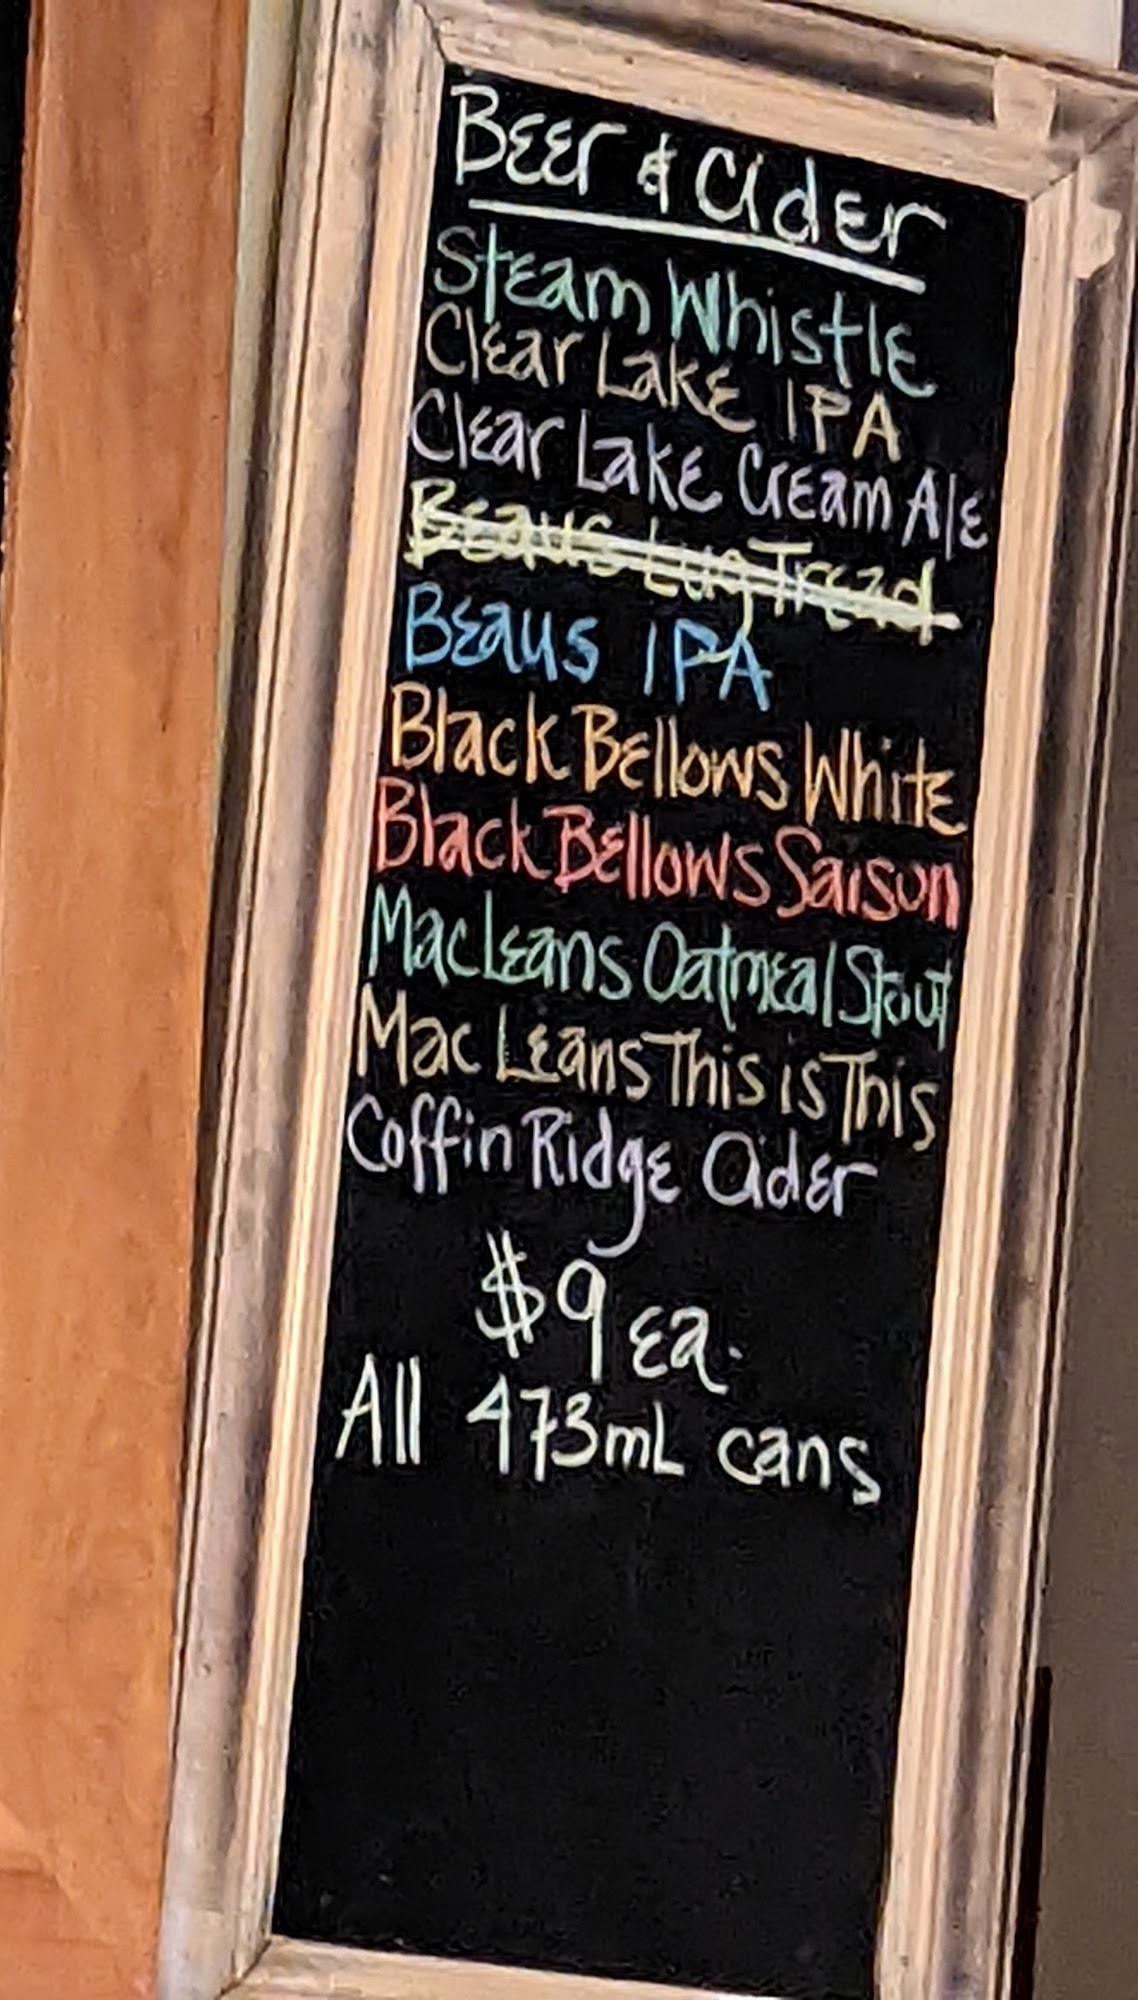 Beer & Cider
Steam Whistle
Clear Lake IPA
Clear Lake Cream Ale
Beaus Lug Tread
Beaus IPA
Black Bellows White
Black Bellows Saison
MacLeans Oatmeal Stout
MacLeans This is This
Coffin Ridge Cider
$9 ea.
All 473mL cans